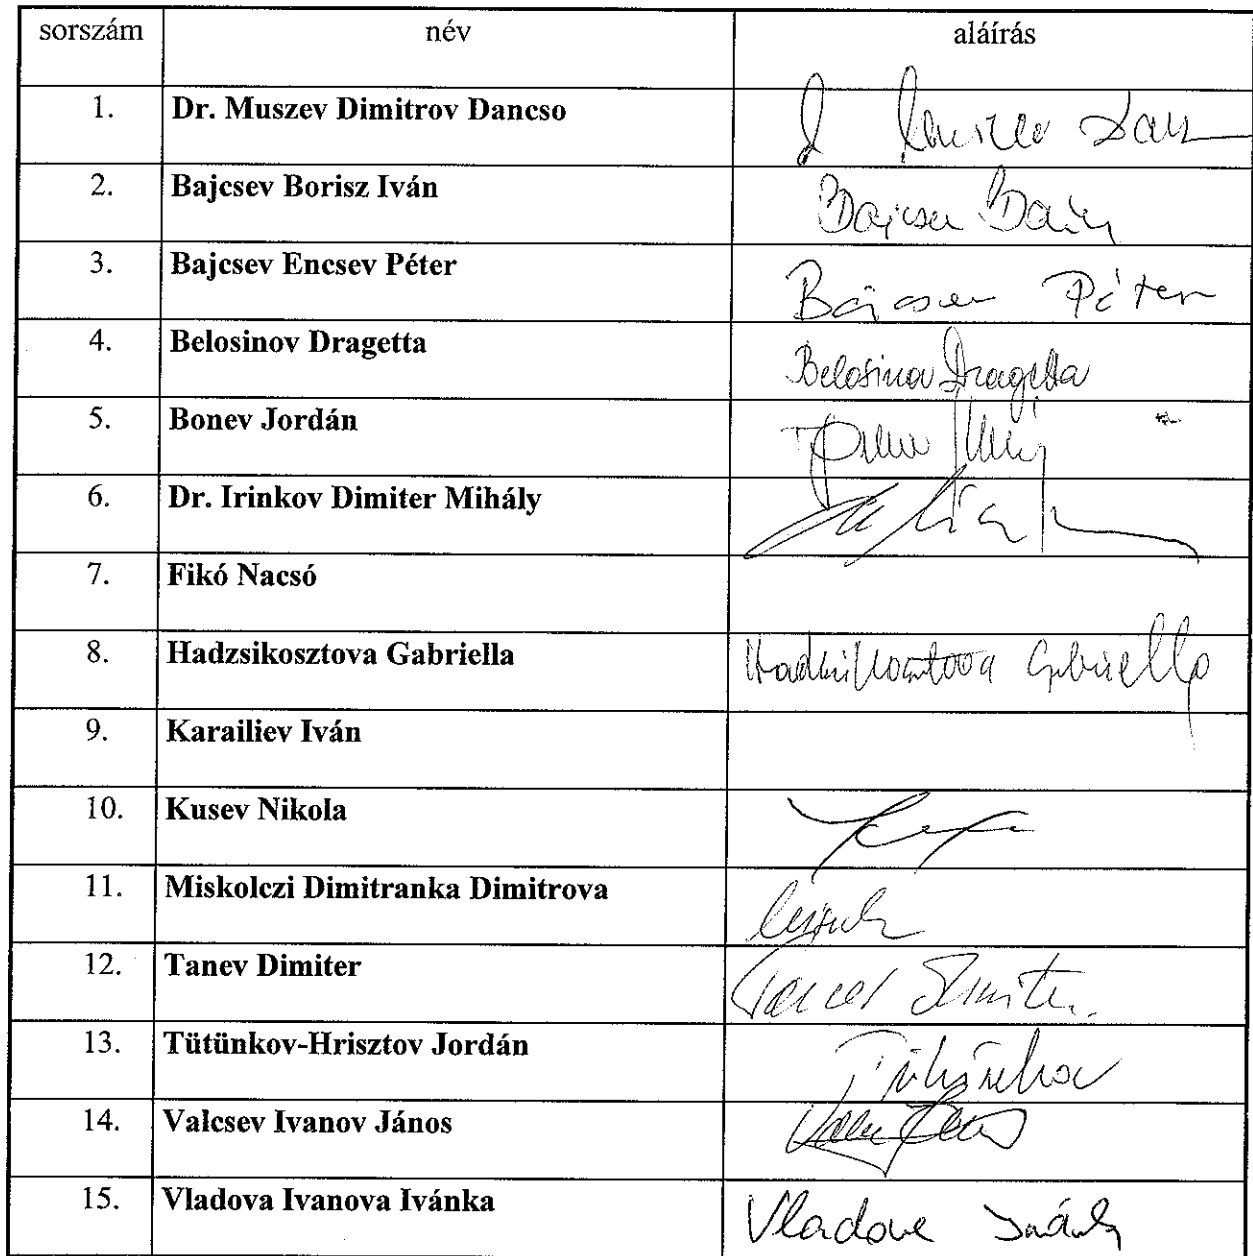 sorszám név aláírás
1. Dr. Muszev Dimitrov Dancso
2. Bajcsev Borisz Iván Bajcsev
3. Bajcsev Encsev Péter Bajcsev Péter
4. Belosinov Dragetta Belosinov Dragetta
5. Bonev Jordán
6. Dr. Irinkov Dimiter Mihály
7. Fikó Nacsó
8. Hadzsikosztova Gabriella Hadzsikosztova Gabriella
9. Karailiev Iván
10. Kusev Nikola
11. Miskolczi Dimitranka Dimitrova
12. Tanev Dimiter Tanev Dimiter
13. Tütünkov-Hrisztov Jordán
14. Valcsev Ivanov János
15. Vladova Ivanova Ivánka Vladova Ivánka